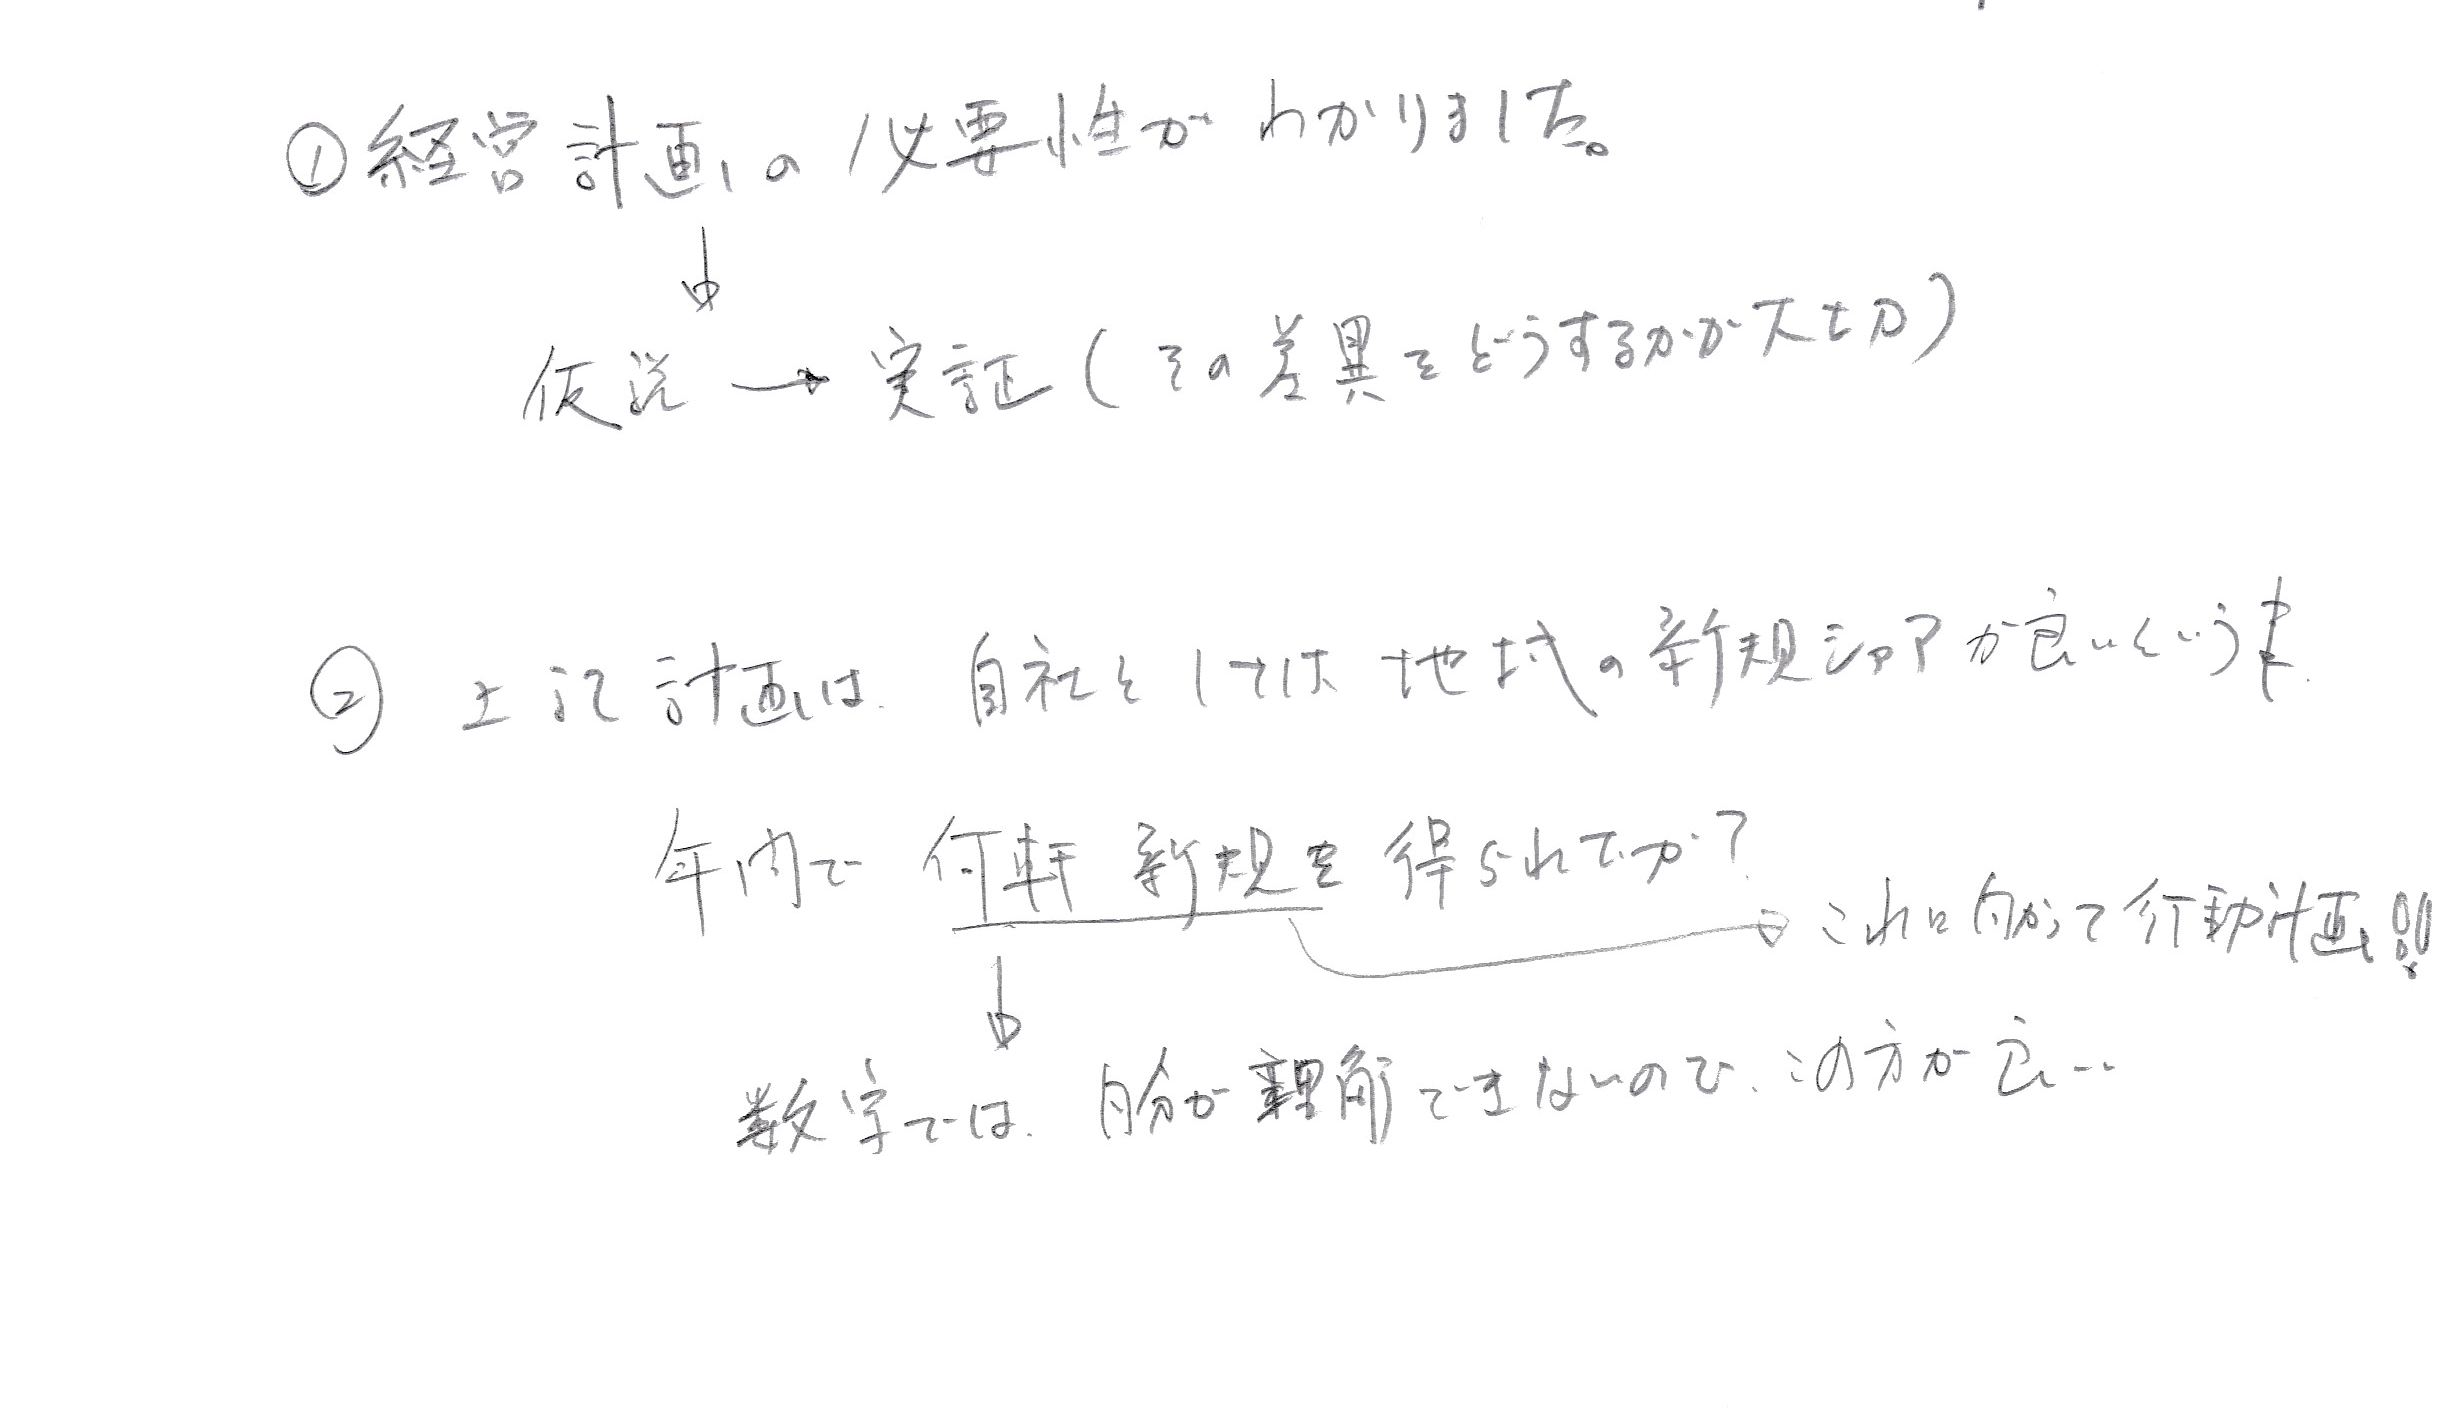 ①経営計画の必要性がわかりました。
↓
仮説→実証(その差異をどうするかが大切)
② 上記計画は、自社としては、地域の新規シェアが良いという事.
年内で 何軒 新規を 得られてか?
→ これに向かって行動計画!!
↓
数字では、自分が理解できないので、この方が良い…